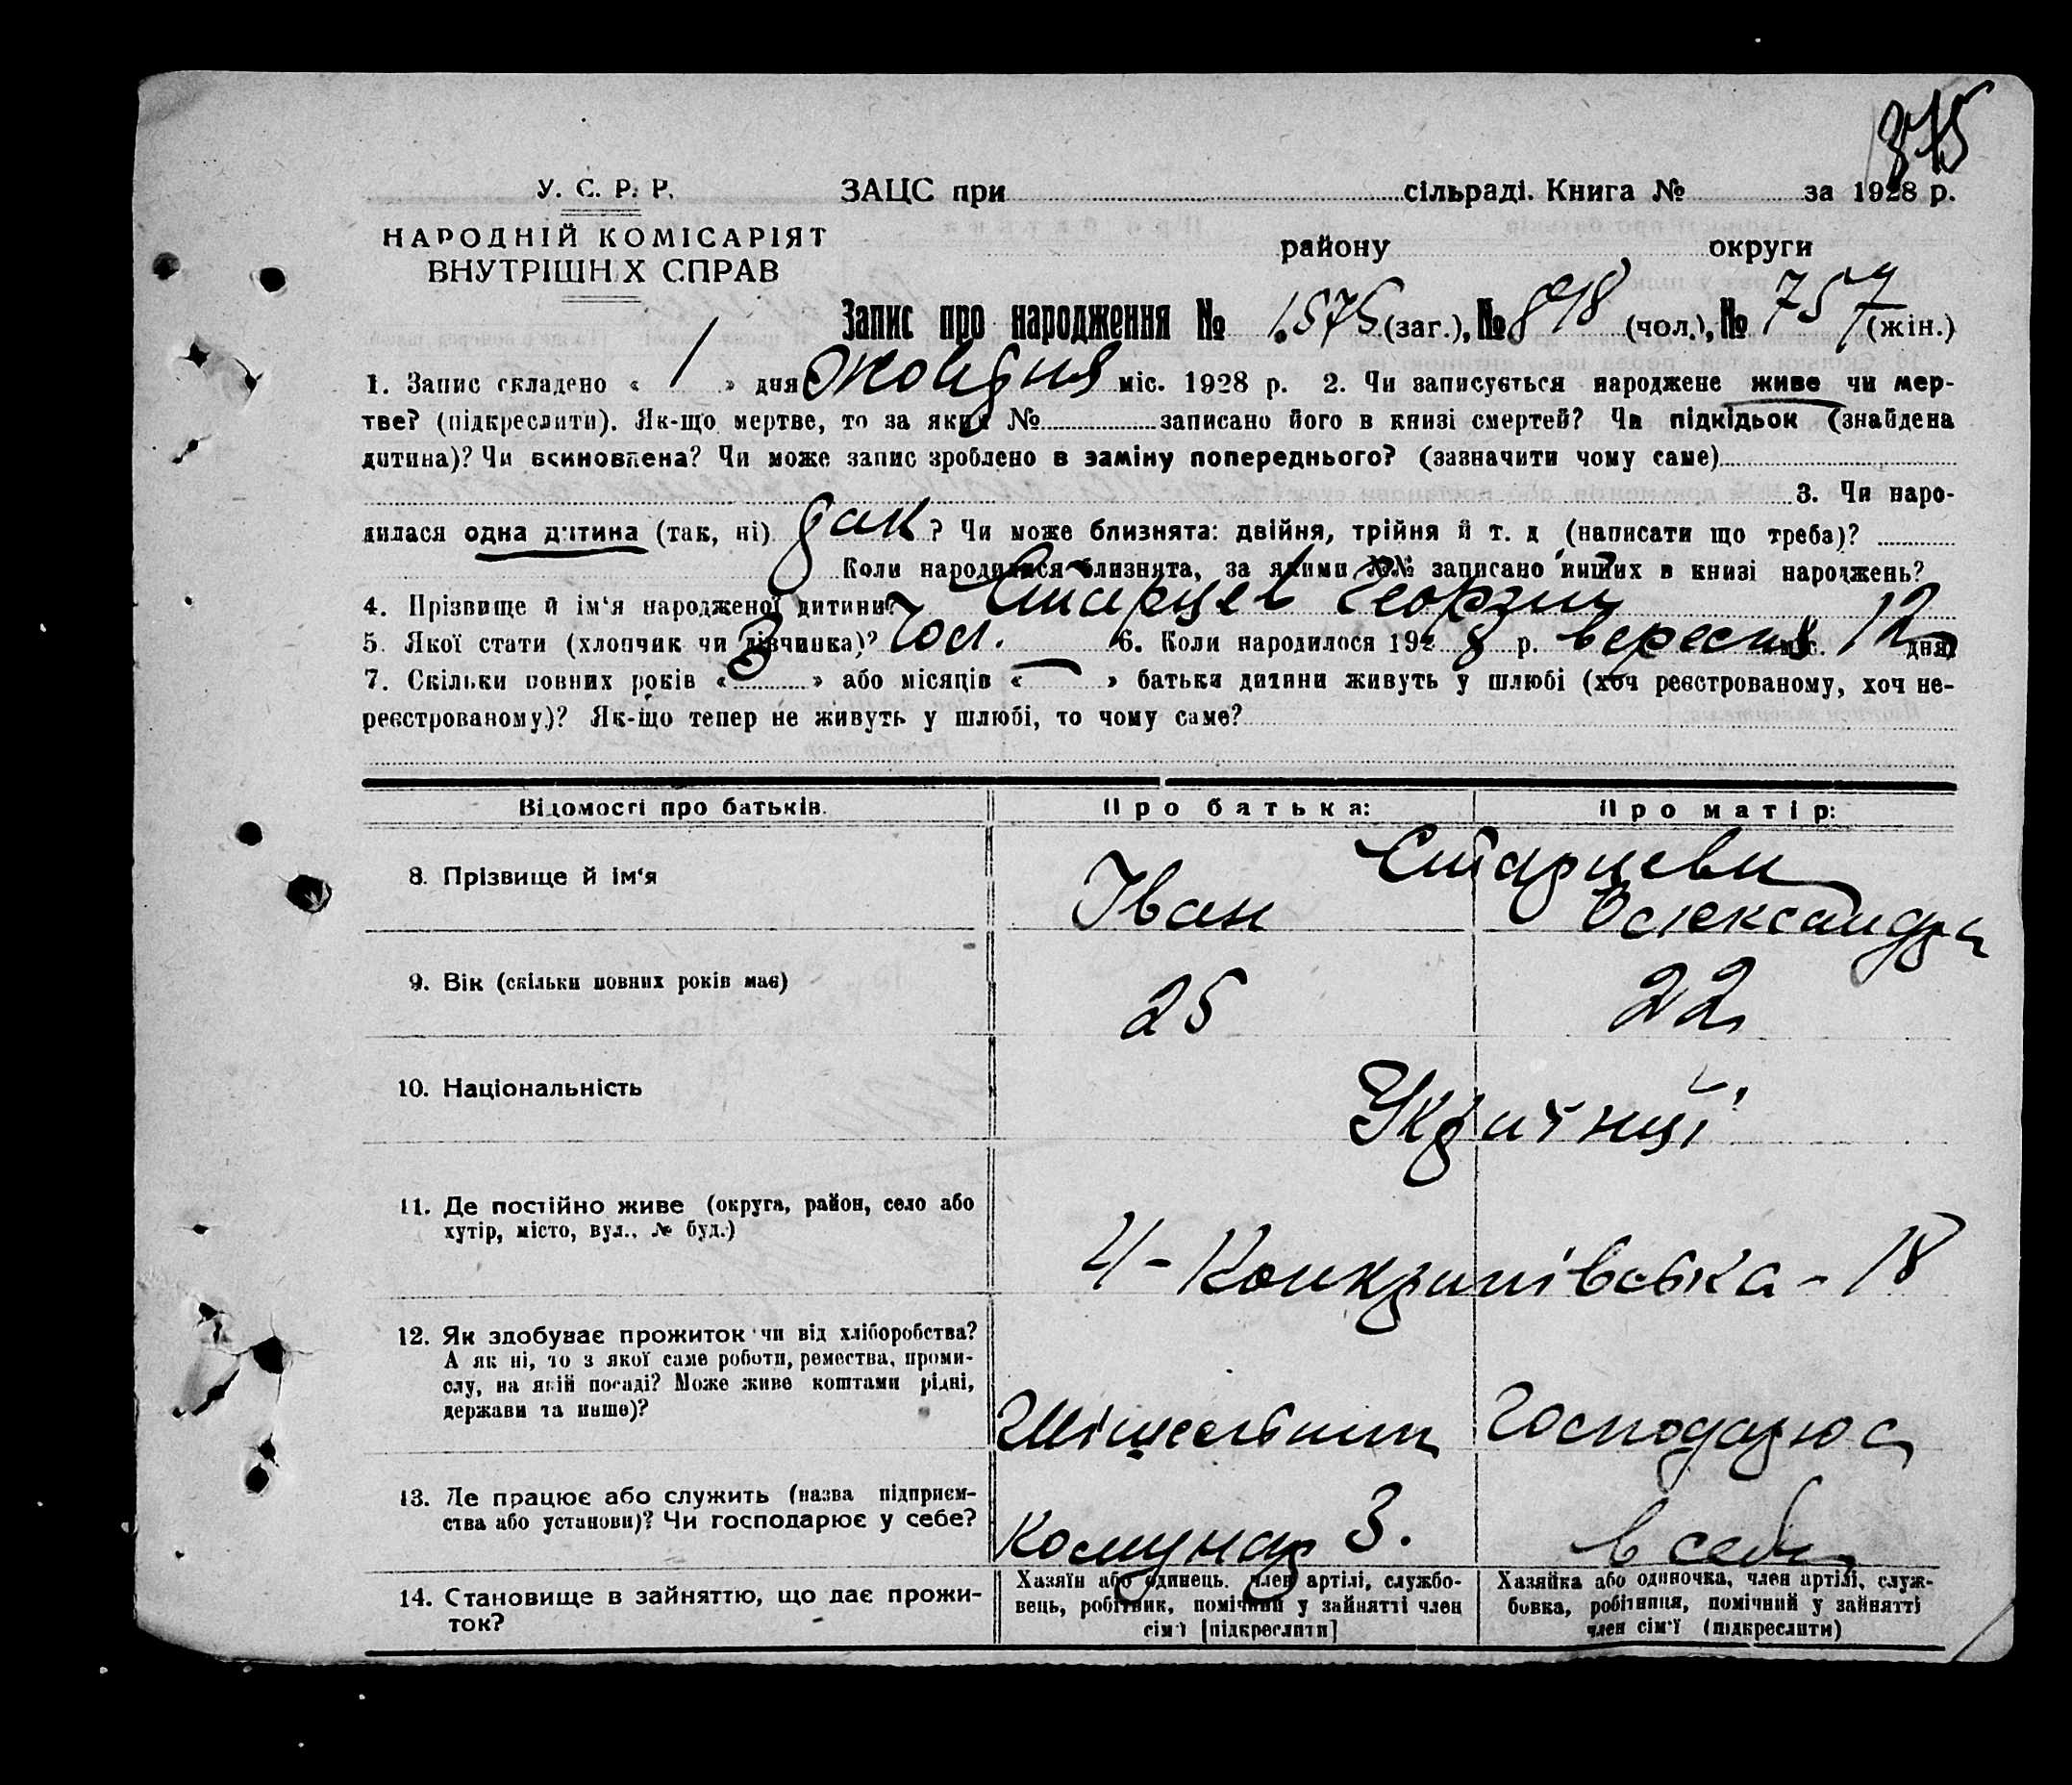 375
У. С. Р. Р.
ЗАЦС при сільраді. Книга № за 1928 р.
НАРОДНІЙ КОМІСАРІЯТ
району округи
ВНУТРІШН Х СПРАВ
Запис про народження № 1575 (заг.), № 818 (чол.), № 757 (жін.)
1. Запис складено « 1 » дня жовтня міс. 1928 р. 2. Чи записується народжене живе чи мер-
тве? (підкреслити). Як-що мертве, то за яким № записано його в книзі смертей? Чи підкідьок (знайдена
дитина)? Чи всиновлена? Чи може запис зроблено в заміну попереднього? (зазначити чому саме)
3. Чи наро-
дилася одна дитина (так, ні) так ? Чи може близнята: двійня, трійня й т. д. (написати що треба)?
Коли народилися близнята, за якими №№ записано інших в книзі народжень?
4. Прізвище й ім'я народженої дитини? Старцев Георгий
5. Якої стати (хлопчик чи дівчинка)? Чол. 6. Коли народилося 1928 р. вересня міс. 12 дня
7. Скільки повних років « 3 » або місяців « — » батьки дитини живуть у шлюбі (хоч реєстрованому, хоч не-
реєстрованому)? Як-що тепер не живуть у шлюбі, то чому саме?
Відомості про батьків. Про батька: Про матір:
Старцеви
8. Прізвище й ім'я Іван Олександра
9. Вік (скільки повних років має) 25 22
10. Національність Українці
11. Де постійно живе (округа, район, село або
хутір, місто, вул., № буд.)
18
12. Як здобуває прожиток чи від хліборобства?
А як ні, то з якої саме роботи, ремества, проми-
слу, на якій посаді? Може живе коштами рідні,
держави та инше)?
Господарює
13. Де працює або служить (назва підприєм-
ства або установи)? Чи господарює у себе?
Комунар З. в себе
14. Становище в зайняттю, що дає прожи-
ток?
Хазяїн або одинець, член артілі, службо-
вець, робітник, помічний у зайнятті член
сім'ї [підкреслити]
Хазяйка або одиночка, член артілі, служ-
бовка, робітниця, помічний у зайнятті
член сім'ї (підкреслити)